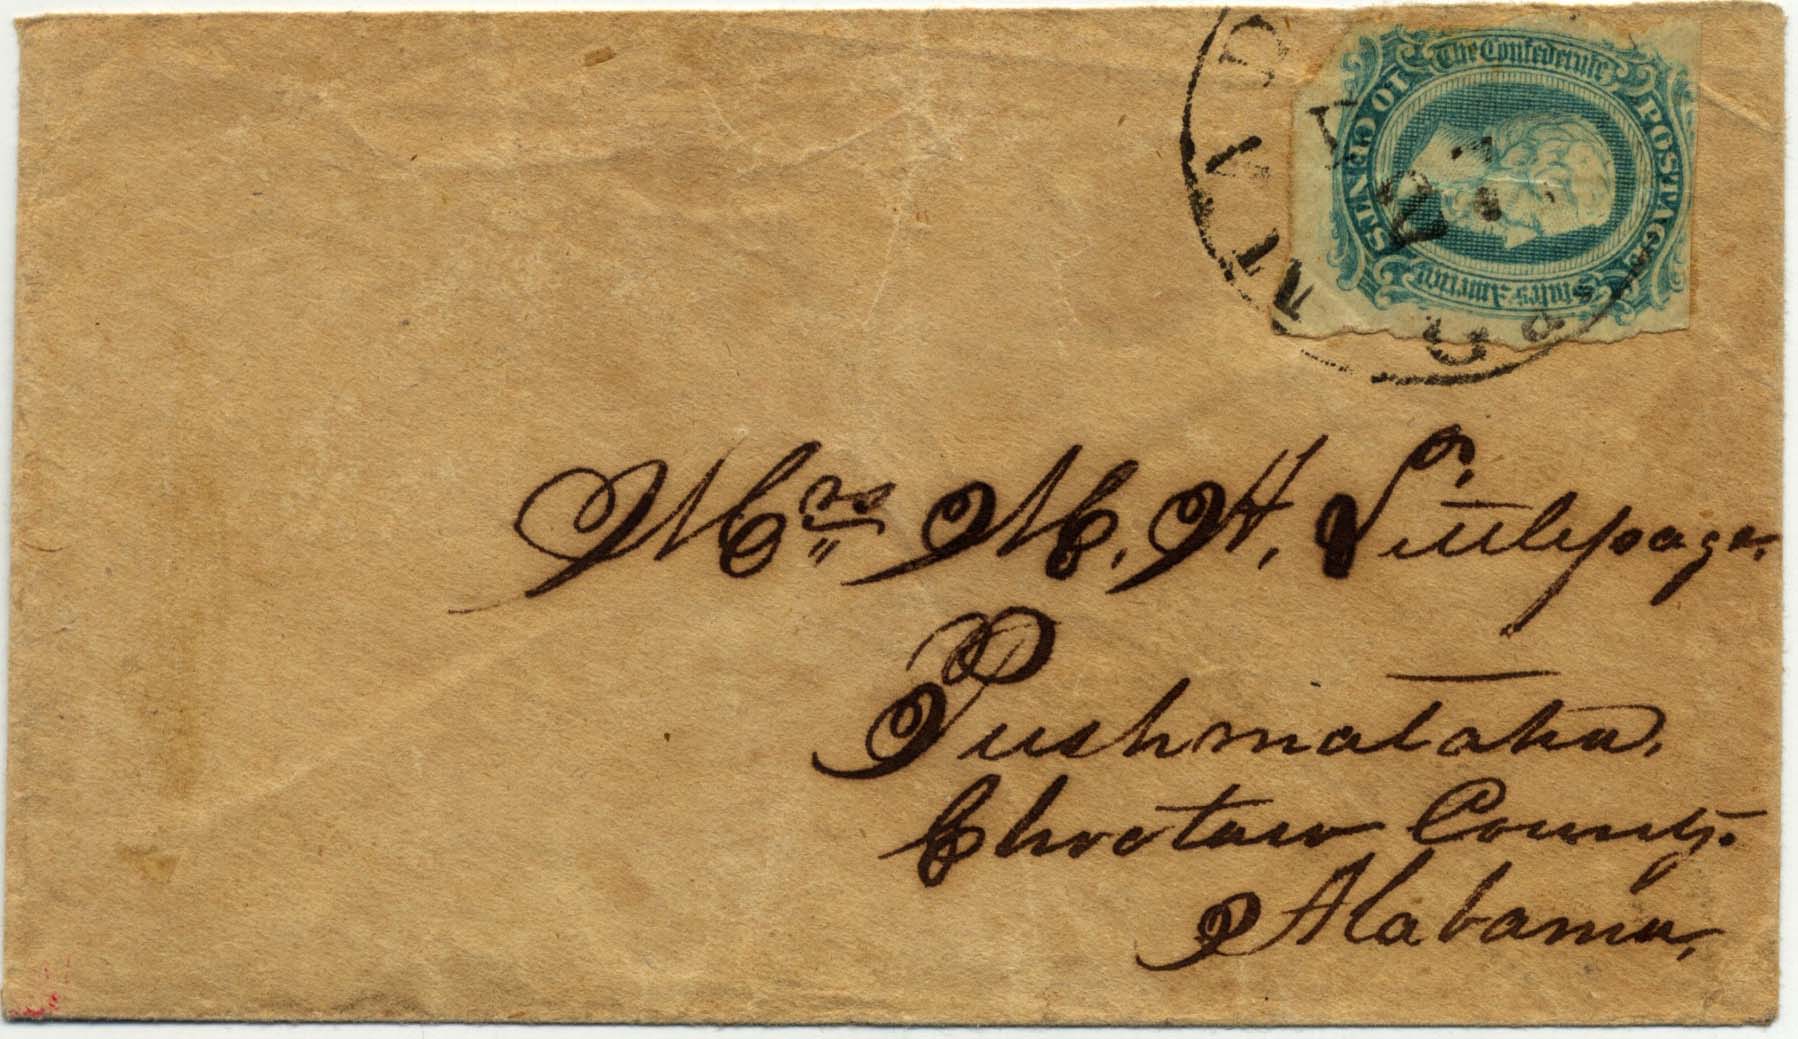 The Confederate
States America
POSTAGE
10 CENTS
Mrs M. H. Littlepage.
Pushmataha.
Choctaw County.
Alabama,